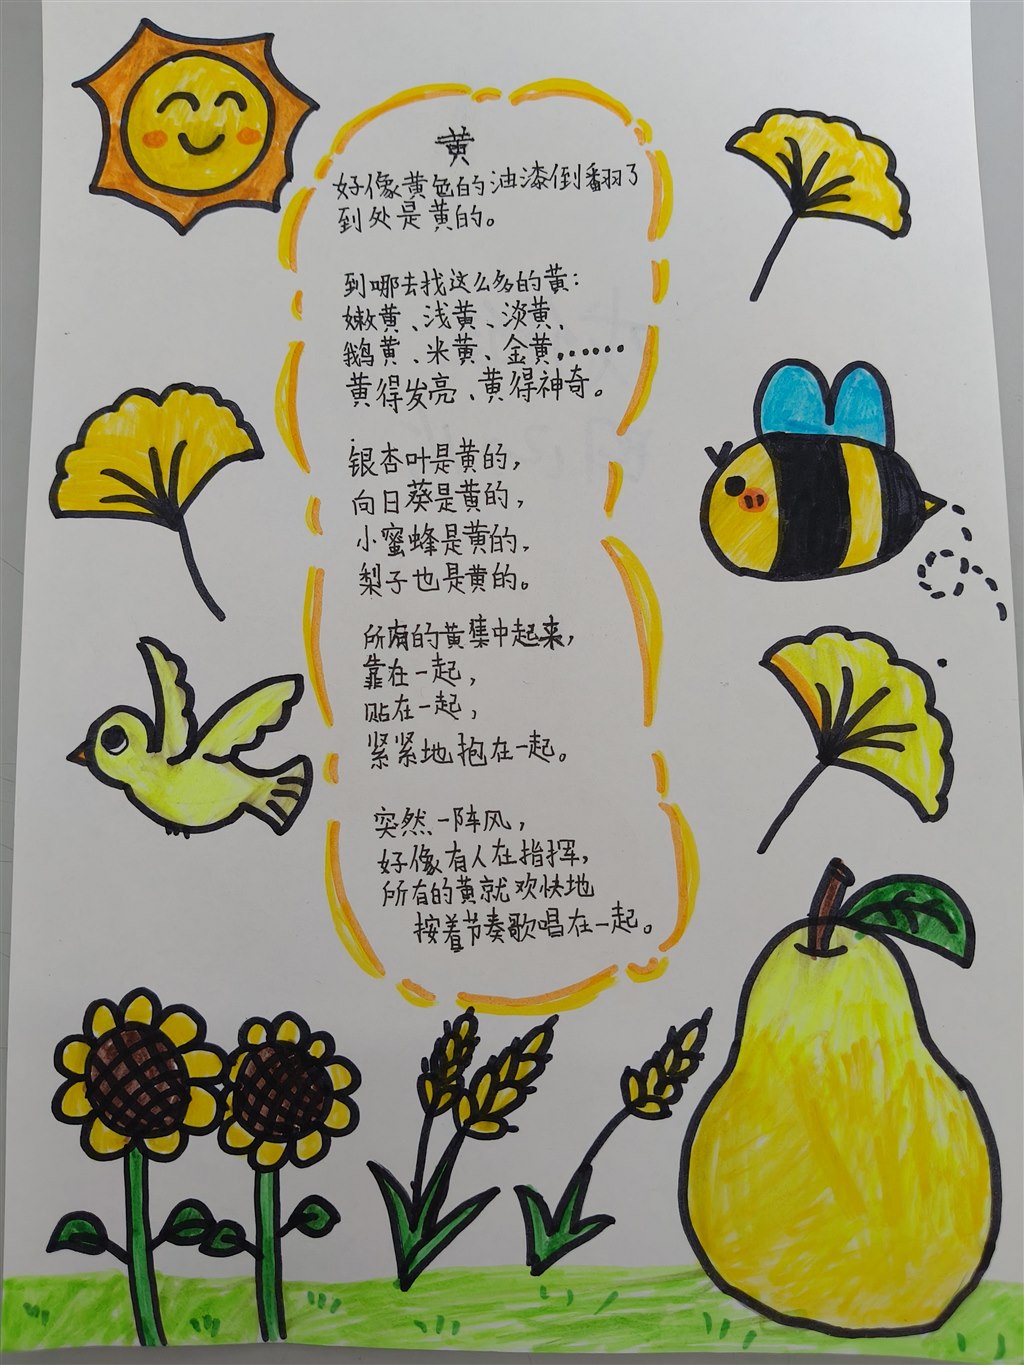 黄
好像黄色的油漆倒翻了
到处是黄的。
到哪去找这么多的黄：
嫩黄、浅黄、淡黄、
鹅黄、米黄、金黄……
黄得发亮、黄得神奇。
银杏叶是黄的，
向日葵是黄的，
小蜜蜂是黄的，
梨子也是黄的。
所有的黄集中起来，
靠在一起，
贴在一起，
紧紧地抱在一起。
突然一阵风，
好像有人在指挥，
所有的黄就欢快地
按着节奏歌唱在一起。